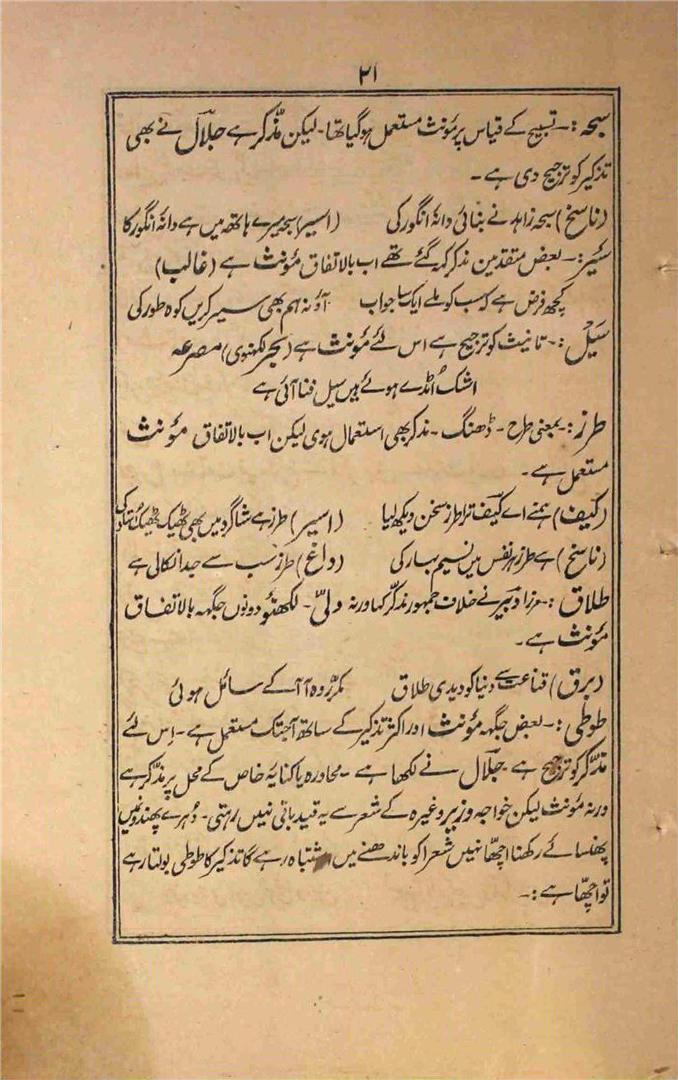 ۲۱
سبحہ :۔ تسبیح کے قیاس پر مؤنث مستعمل ہوگیا تھا۔ لیکن مذّکر ہے جلالؔ نے بھی
تذکیر کو ترجیح دی ہے۔
(ناسخ) سبحہ زاہد نے بنائی دانۂ انگور کی (اسیر) سبحہ میرے ہاتھ میں ہے دانۂ انگور کا
سَیر :۔ بعض متقدمین مذکر کہہ گئے تھے اب بالاتفاق مؤنث ہے (غالب)
کچھ فرض ہے کہ سب کو ملے ایک سا جواب آؤ نہ ہم بھی سیر کریں کوہ طور کی
سَیل :۔ تانیث کو ترجیح ہے اس لئے مؤنث ہے (بحر لکھنوی) مصرعہ
اشک اُمڈے ہوئے ہیں سیل فنا آئی ہے
طرز :۔ بمعنی طرح۔ ڈھنگ۔ مذکر بھی استعمال ہوی لیکن اب بالاتفاق مؤنث
مستعمل ہے۔
(کیف) ہمنے اے کیفؔ ترا طرز سخن دیکھ لیا (اسیر) طرز ہے شاگرد میں بھی ٹھیک ٹھیک اُستاد کی
(ناسخ) ہے طرز ہر نفس میں نسیم بہار کی (داغ) طرز سب سے جدا نکالی ہے
طلاق :۔ مرزا دبیرؔ نے خلاف جمہور مذکّر کہا ورنہ دلّی۔ لکھنؤ دونوں جگہہ بالاتفاق
مؤنث ہے۔
(برق) قناعت نے دنیا کو دیدی طلاق مکرّر وہ آ آ کے سائل ہوئی
طوطی :۔ بعض جگہہ مؤنث اور اکثر تذکیر کے ساتھ آجتک مستعمل ہے۔ اِس لئے
مذّکر کو ترجیح ہے جلالؔ نے لکھا ہے۔ محاورہ یا کنایۂ خاص کے محل پر مذکّر ہے
ورنہ مؤنث لیکن خواجہ وزیرؔ وغیرہ کے شعر سے یہ قید باقی نہیں رہتی۔ دُہرے پھندونمیں
پھنسائے رکھنا اچھّا نہیں شعرا کو باندھنے میں اشتباہ رہے گا تذکیر کا طوطی بولتا رہے
تو اچھّا ہے :۔